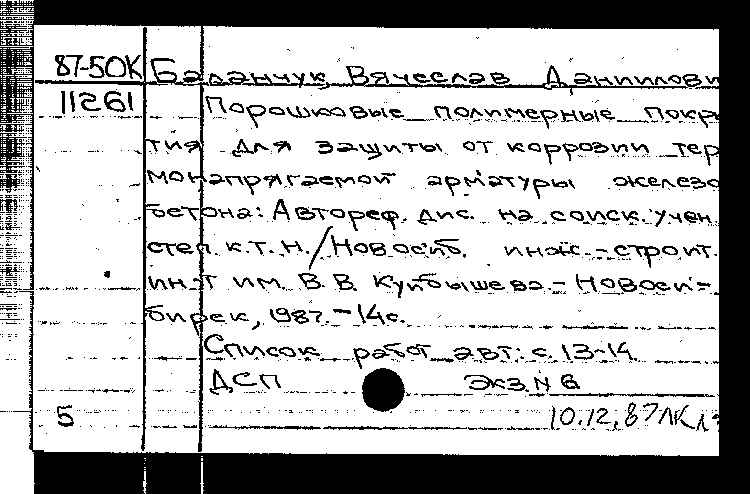 87-50К Баланчук, Вячеслав Даниилови
11261 Порошковые полимерные покры
тия для защиты от коррозии тер
монапрягаемой арматуры железо
бетона: Автореф. дис. на соиск. учен.
степ. к.т.н. / Новосиб. инж.-строит.
ин-т им. В.В. Куйбышева. - Новоси-
бирск, 1987. - 14с.
Список работ авт.: с. 13-14
ДСП Экз. N 6
5 10.12.87